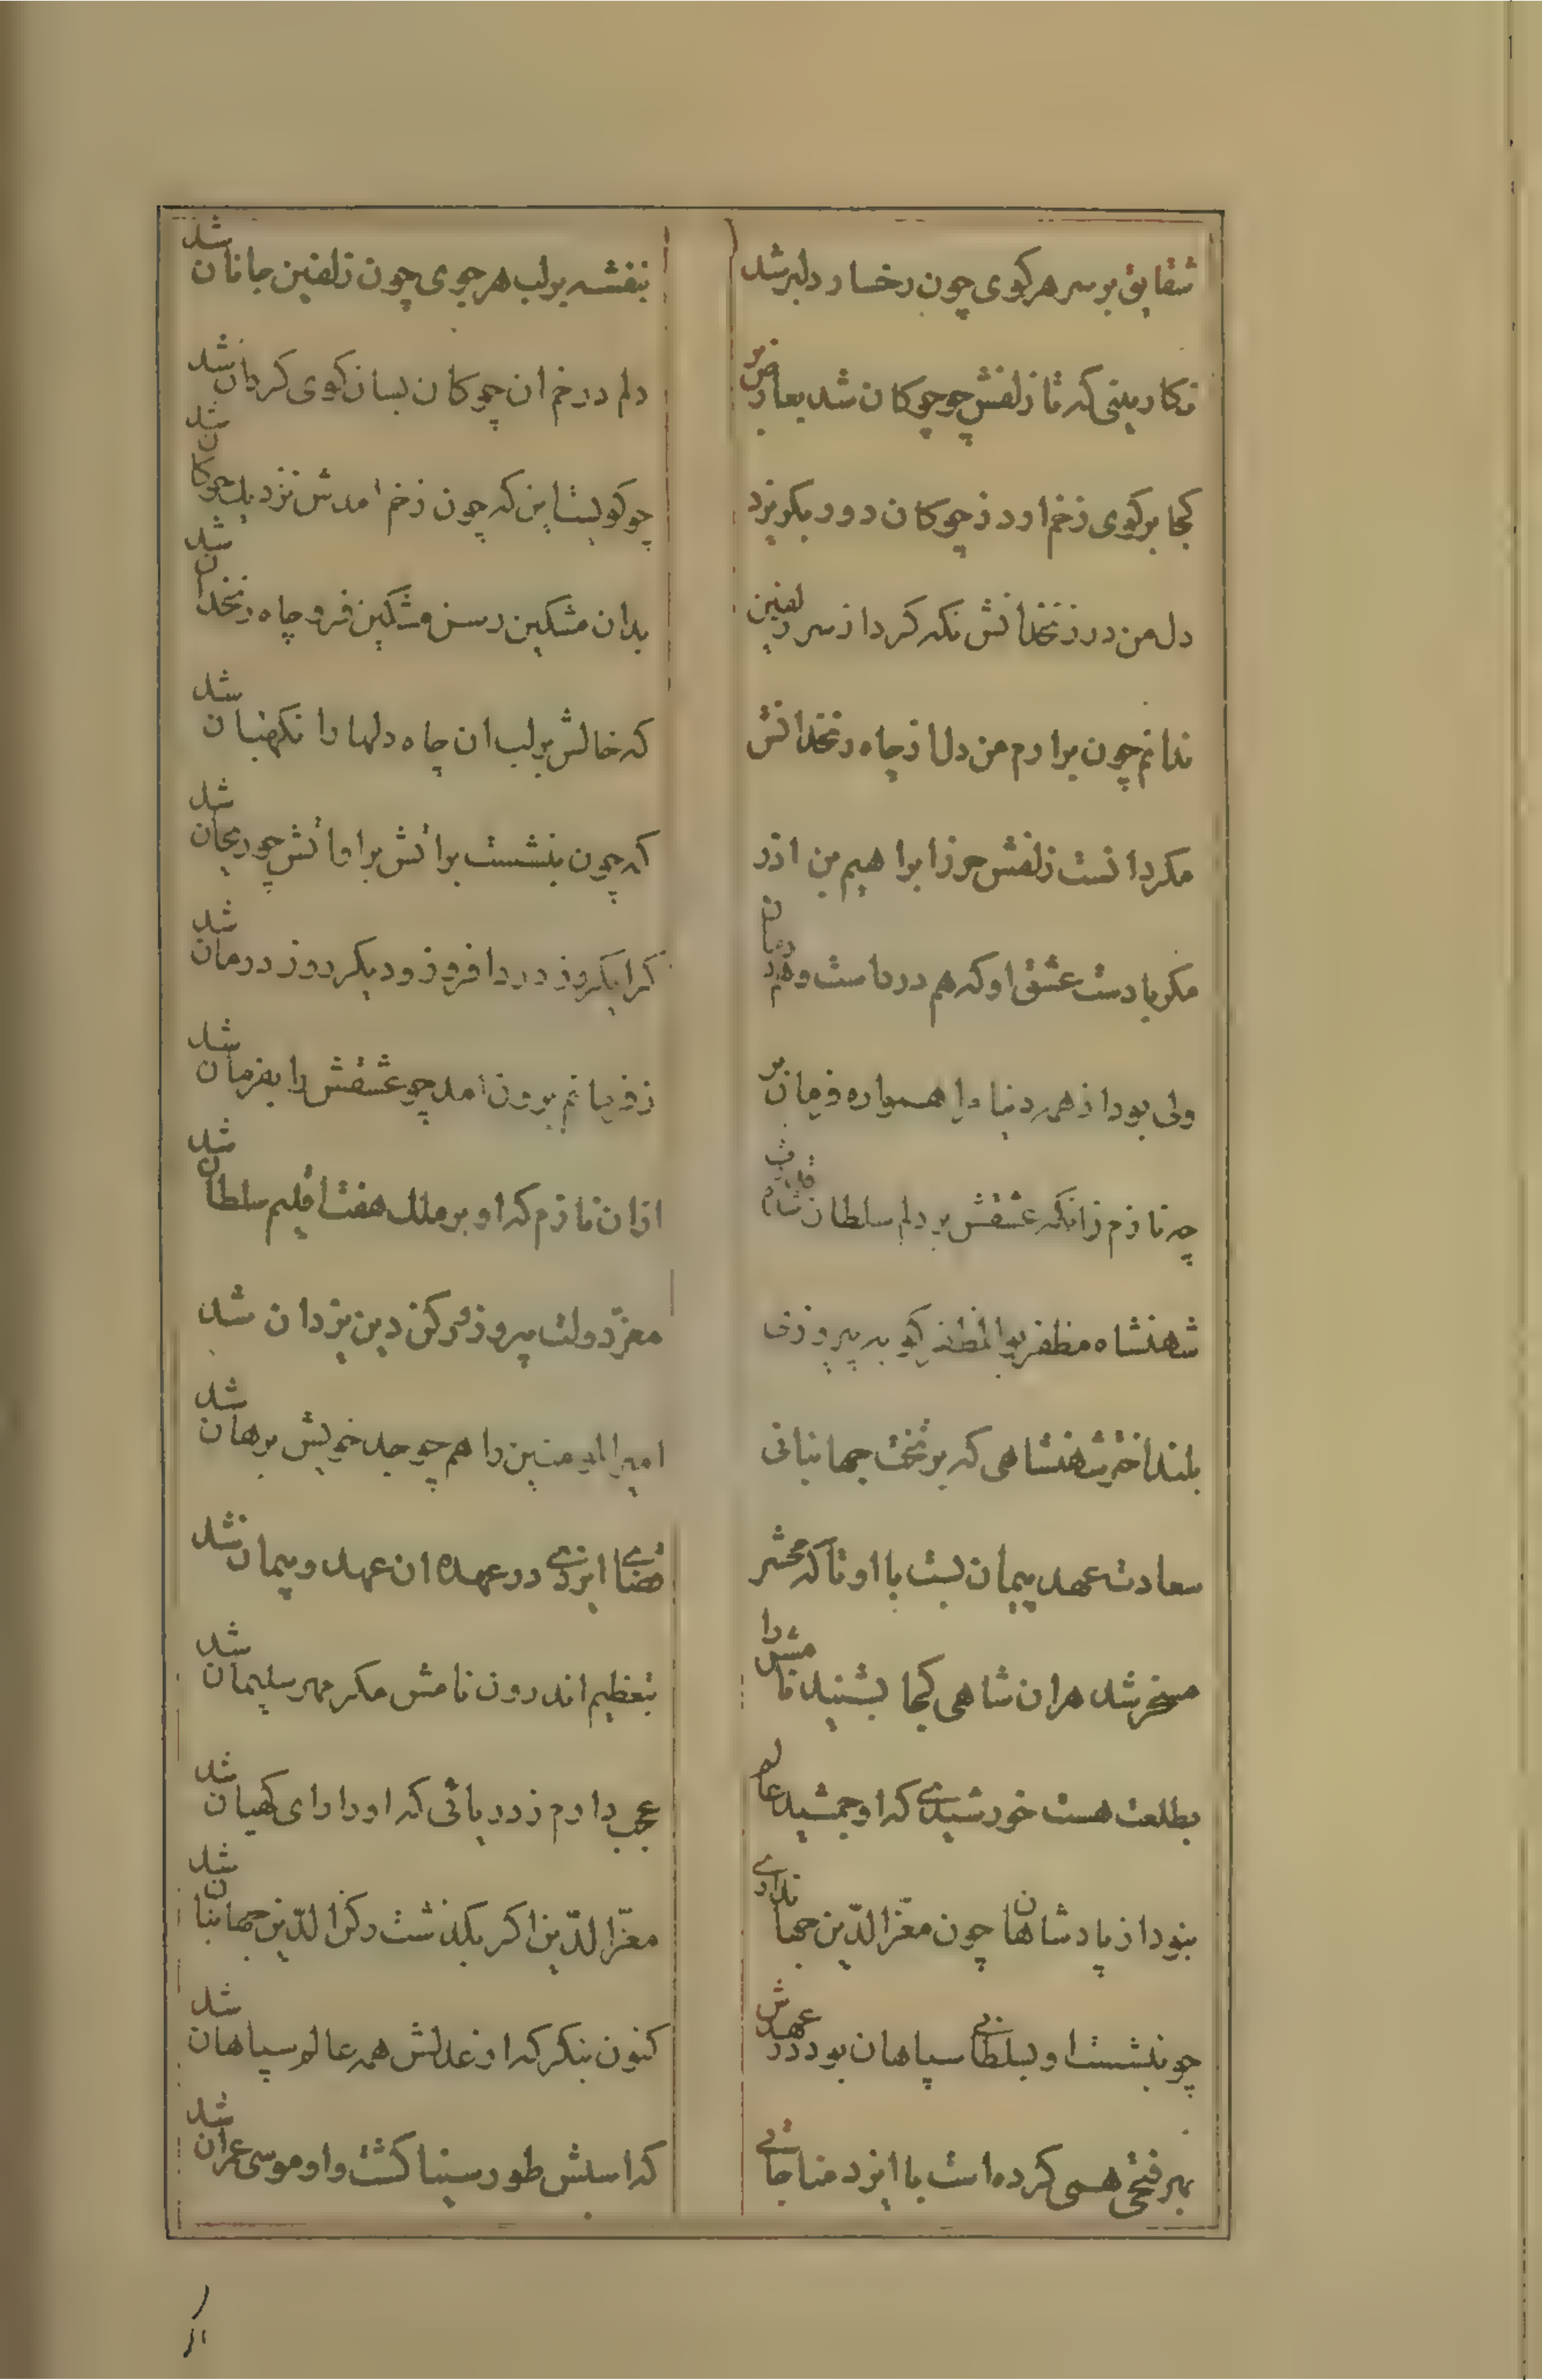 شقایق بر سر هر کوی چون رخسار دلبر شد
بنفشه بر لب هر جوی چون زلفین جانان شد
نکار بینی که تا زلفش چو چوکان شد بعارض بر
دلم در خم ان چوکان بسان کوی کردان شد
کجا بر کوی زخم اورد ز چوکان دور بکریزد
چو کو بشتابن که چون زخم امدش نزدیک چوکان شد
دل من در زنخدانش نکه کرد از سر زلفین
بدان مشکین رسن مشکین فرو چاه زنخدان شد
ندانم چون برارم من دل از چاه زنخدانش
که خالش بر لب ان چاه دلها را نکهبان شد
مکر دانست زلفش حرز ابراهیم بن اذر
که چون بنشست بر اتش برا و اتش چو ریحان شد
مکر یارست عشق او که هم دردست و هم درمان
کرا یکروز درد افروزد دیکر روز درمان شد
ولی بود از همه دنیا مرا همواره فرمان بر
ز فرمانم برون امد چو عشقش را بفرمان شد
چه نازم زانکه عشقش بر دلم سلطان شد
ازان نازم که او بر ملک هفت اقلیم سلطان شد
شهنشاه مظفر بوالمظفر کو به پیروزی
معزّ دولت پیروز و رکن دین یزدان شد
بلند اختر شهنشاهی که بر تخت جهانبانی
امیرالمومنین را هم چو جد خویش برهان شد
سعادت عهد پیمان بست با او تا که محشر
قضای ایزدی در عهده ان عهد و پیمان شد
مسخر شد هران شاهی کجا بشنید نامش را
بتعظیم اندرون نامش مکر مهر سلیمان شد
بطلعت هست خورشیدی که او جمشید عالم
عجب دارم ز دریائی که او دارای کهیان شد
بنود از پادشاهان چون معزّالدّین جهانداری
معزّالدّین اکر بکذشت رکن الدّین جهانبان شد
چو بنشست او بسلطانی سپاهان بود در عهدش
کنون بنکر که از عدلش همه عالم سپاهان شد
بهر فتحی همی کرده است با ایزد مناجاتی
که اسبش طور سینا کشت و او موسی عمران شد